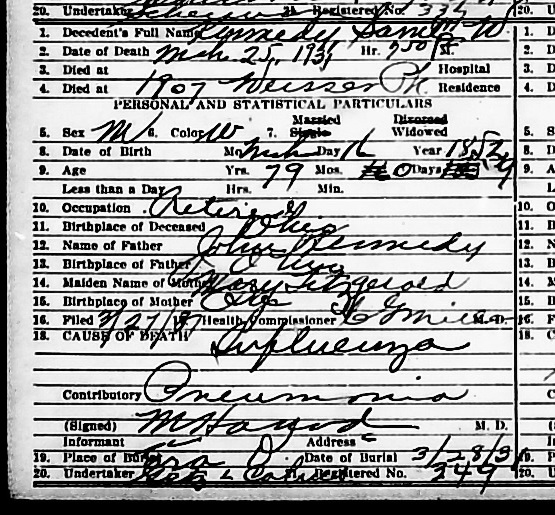 20. Undertaker 21. Registered No. 334
1. Decedent's Full Name Kennedy Saml W
2. Date of Death Mch. 25, 1931 Hr. 950 P.
3. Died at Hospital
4. Died at 1907 Weisser Pk. Residence
PERSONAL AND STATISTICAL PARTICULARS
5. Sex M 6. Color W 7. Married Single Divorced Widowed
8. Date of Birth Mo Mch Day 16 Year 1852
9. Age Yrs. 79 Mos. 0 Days 9
Less than a Day Hrs. Min.
10. Occupation Retired
11. Birthplace of Deceased Ohio
12. Name of Father John Kennedy
13. Birthplace of Father Ohio
14. Maiden Name of Mother Mary Fitzgerald
15. Birthplace of Mother
16. Filed 3/27/ Health Commissioner M. D.
18. CAUSE OF DEATH Influenza
Contributory Pneumonia
(Signed) M. D.
Informant Address
19. Place of Burial Date of Burial 3/28/31
20. Undertaker 21. Registered No. 349